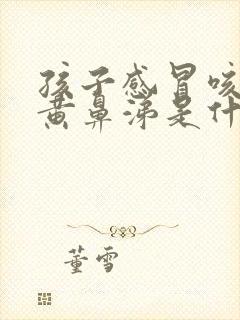 孩子感冒咳
黄鼻涕是什
董雪